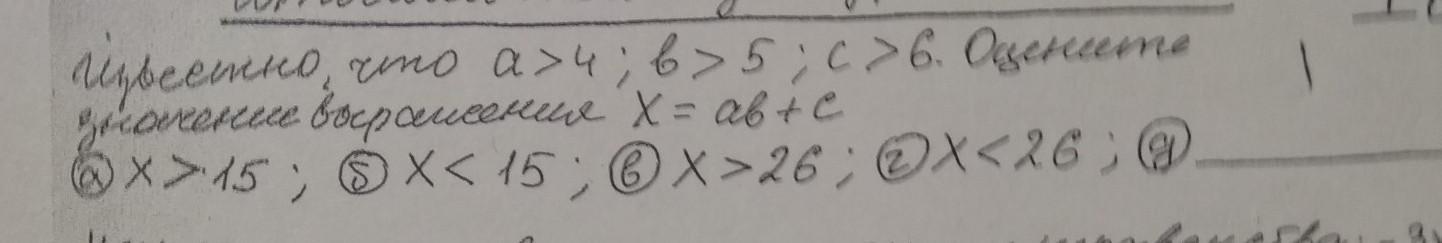 Известно, что a > 4 ; b > 5 ; c > 6. Оцените
значение выражения X = ab + c
а) X > 15 ; б) X < 15 ; в) X > 26 ; г) X < 26 ; д)